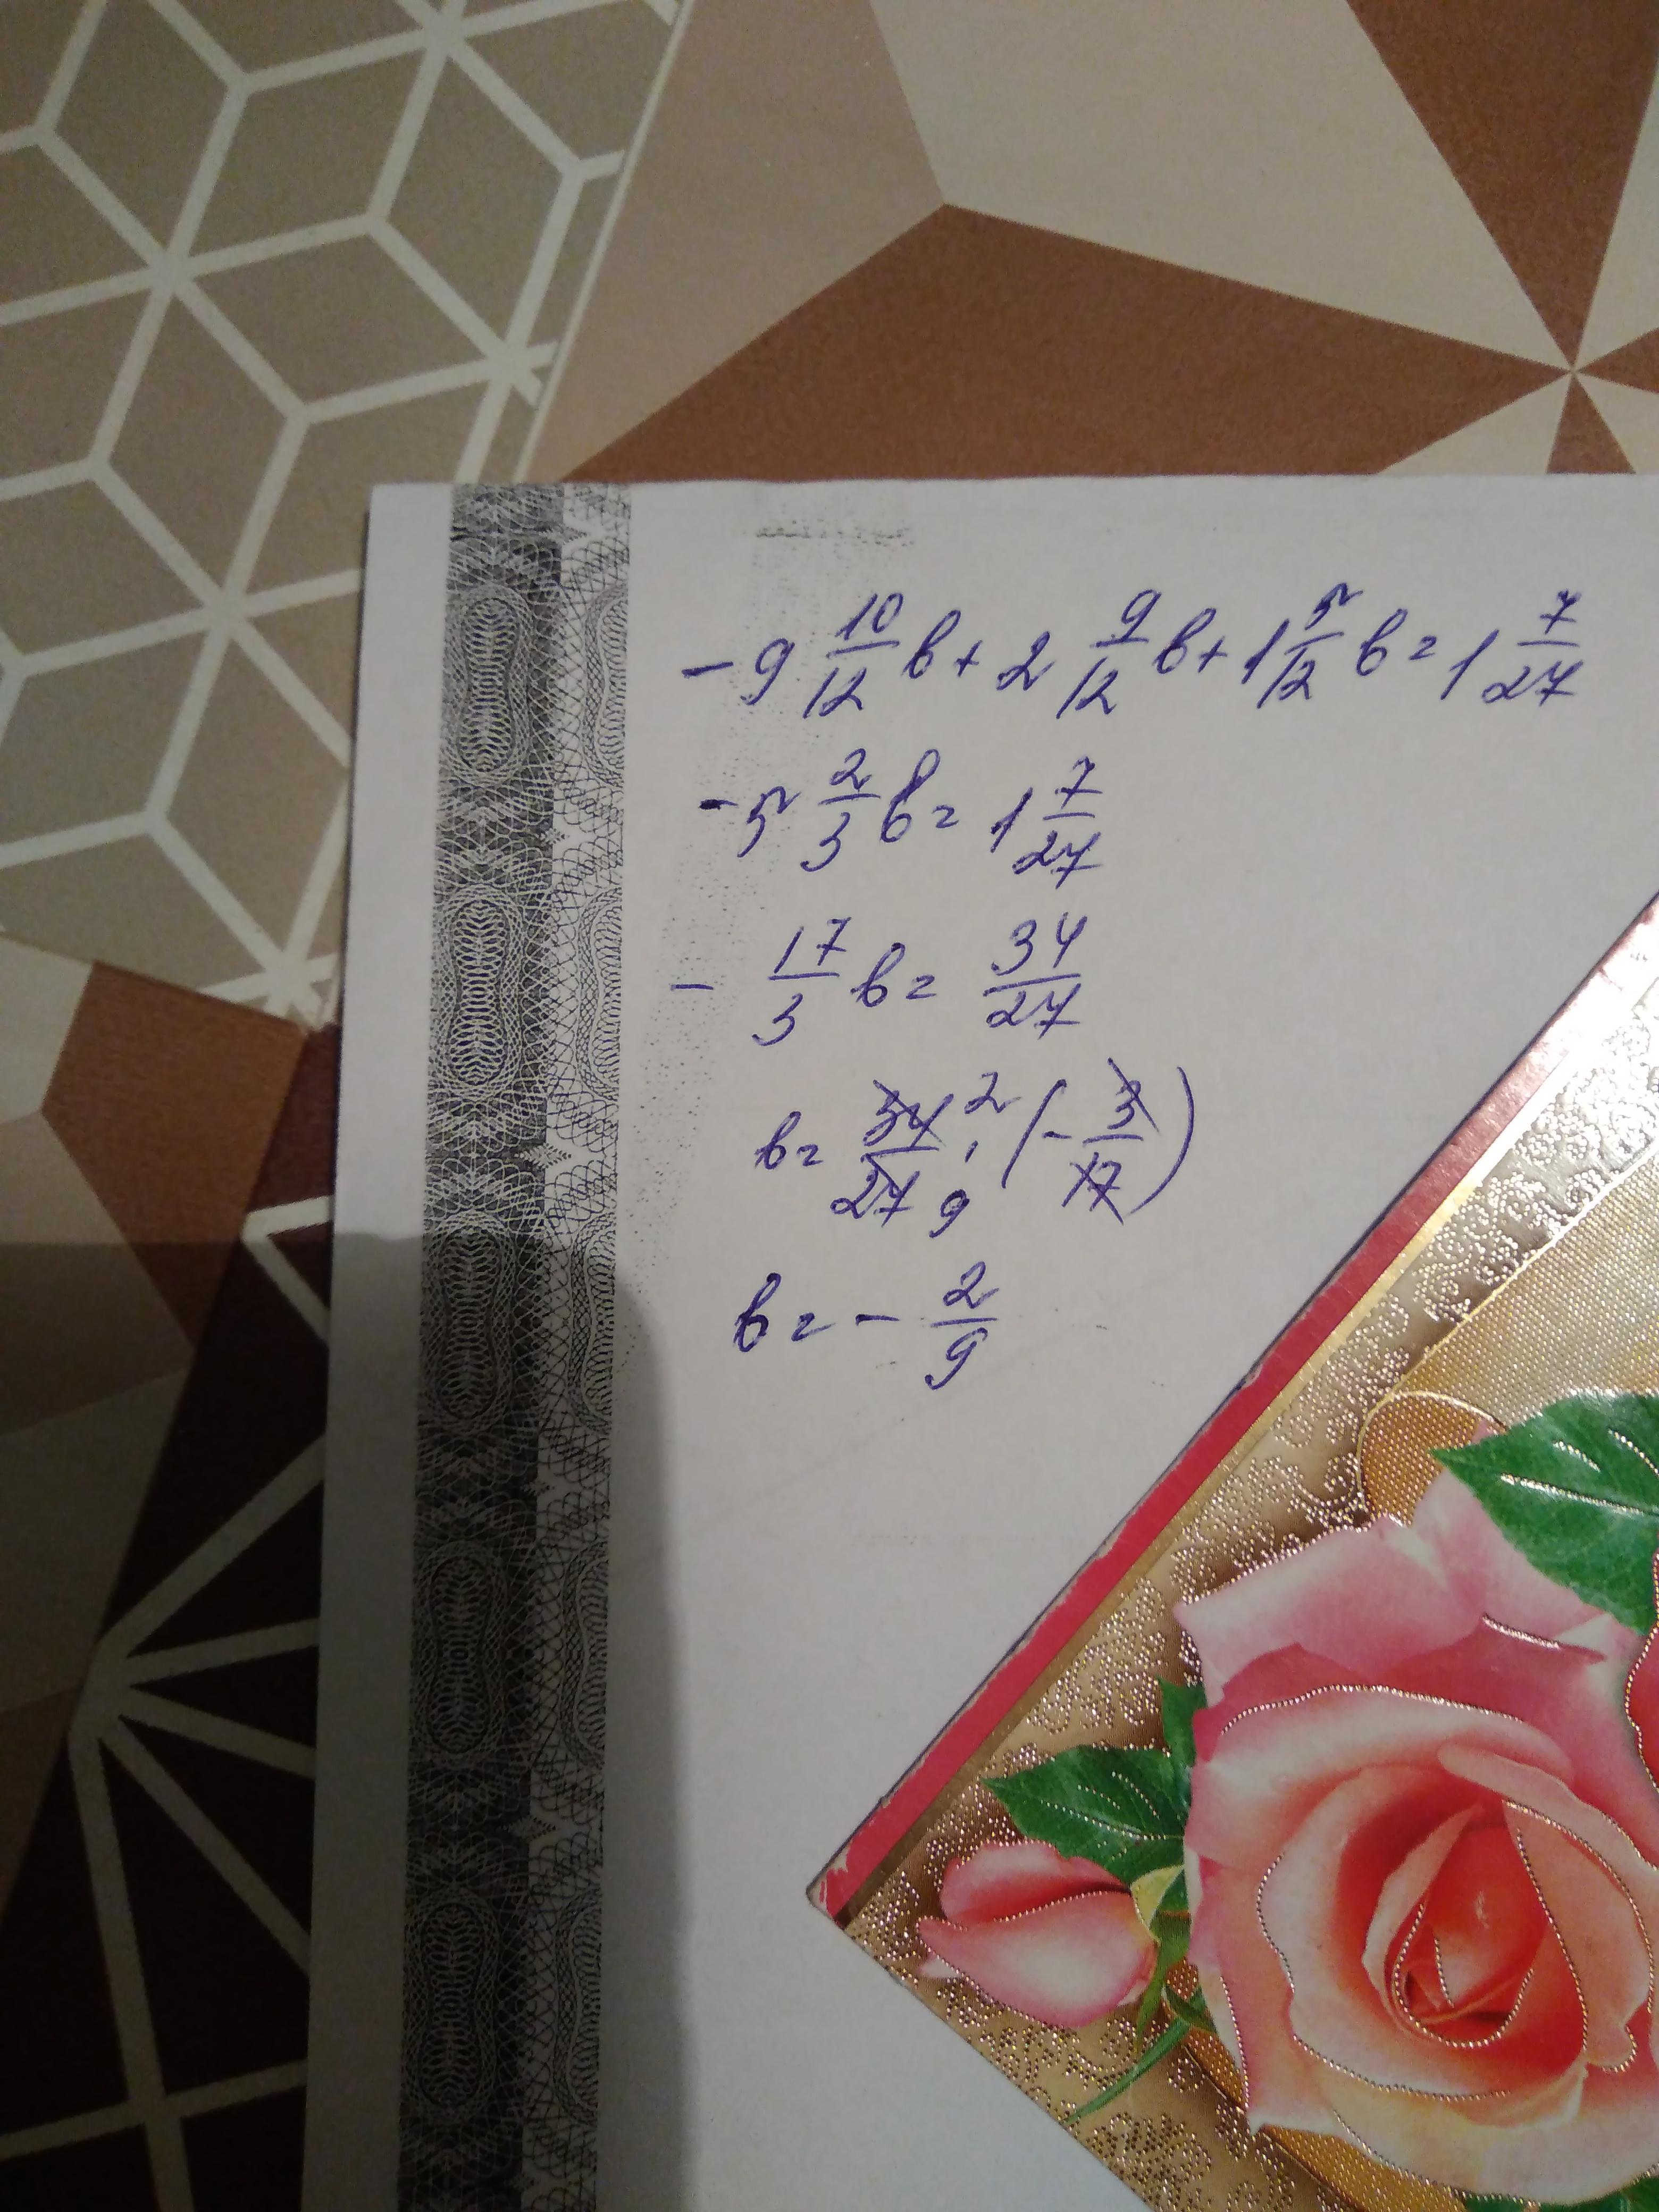 -9 10/12 в + 2 9/12 в + 1 5/12 в = 1 7/27
-5 2/3 в = 1 7/27
- 17/3 в = 34/27
в = 34/27 2 9 · (- 3/17)
в = - 2/9